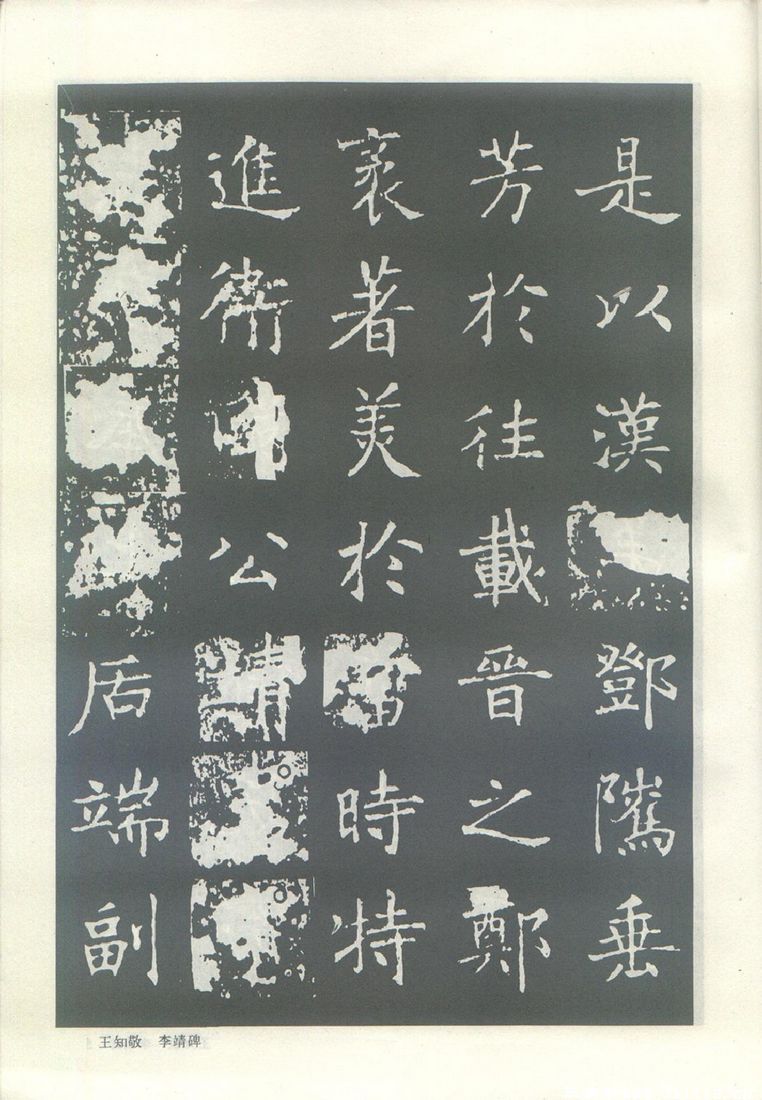 是以漢鄧隲垂
芳於往載晉之鄭
袤著美於當時特
進衛公靖
居端副
王知敬 李靖碑